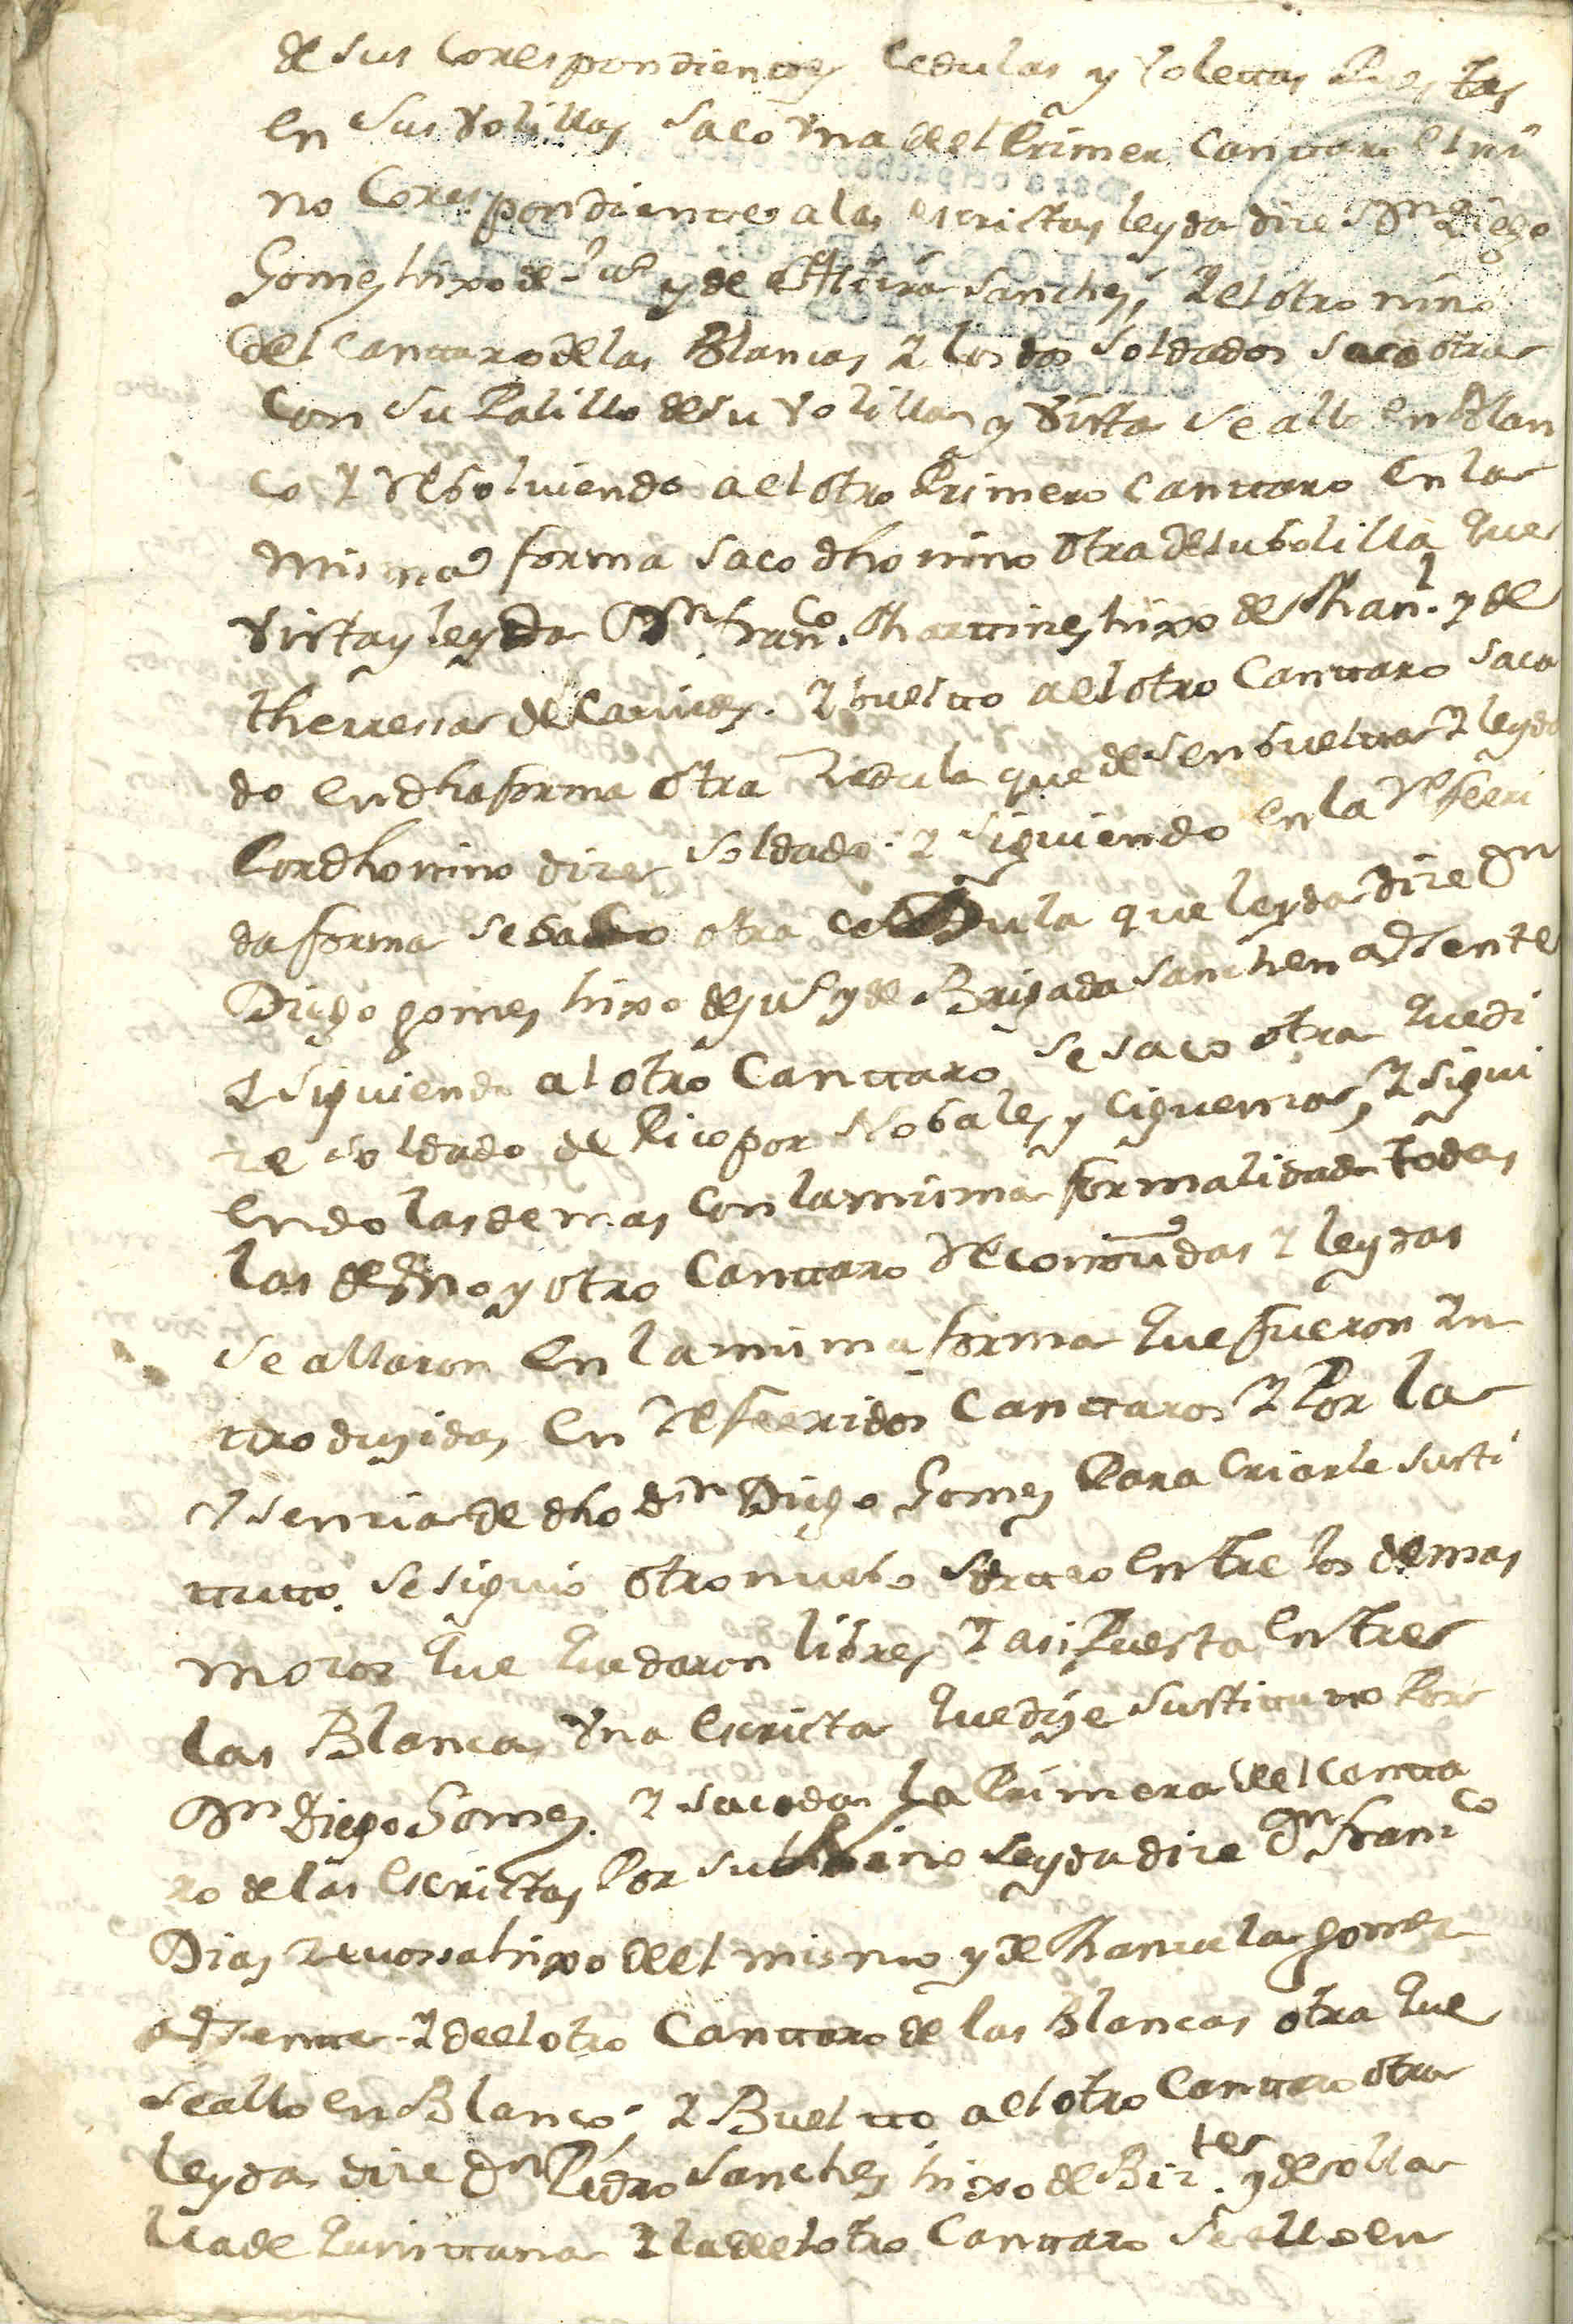 de sus Corespondienttes Cedulas y Colettas Puestas
en sus Volillas saco Vna del Primer Canttaro el ni
no Corespondientte a las escrictas leyda dice Dn Diego
Gomes hixo de y de Sanches, Y el otro nino
del canttaro de las Blancas Y los dos soldados saco otra
Con su Palillo de su Volilla y Vista se allo en Blan
co Y Resolviendo a el otro Primero canttaro en la
misma forma saco dho nino otra de su bolilla Que
Vista y leyda Dn franco. Marttines hixo de Manl. y de
Therressa de Y buelto a el otro Canttaro saca
do en dha forma otra Zedula que desenbueltta Y leyda
Por dho nino dice, soldado: Y siguiendo en la Referi
da forma se saco otra cedula que leyda dice Dn
Diego gomes hixo de y de Brigada Sanchez adsente
Y siguiendo al otro Canttaro se saco otra Que di
ze soldado de Pico por Nobales y Ciguenas, Y sigui
endo las demas Con la misma formalidad todas
las de Vno y otro Canttaro Reconoudas Y leydas
se allaron en la misma forma Que fueron Yn
troduzidas en Referidos Canttaros Y Por la
Ausencia de dho Dn Diego Gomes Para Criarle susti
ttutto. se siguio otro nuebo Sortteo entre los demas
mozos Que Quedaron libres, Y asi Puesta entre
las Blancas Vna escricta Que dize sustittutto Por
Dn Diego Gomes. Y sacada la Primera del Cantta
ro de las escrictas Por su nino leyda dice Dn franco
Dias hixo del mismo y de Manuela gomez
adsentte. Y de el otro Canttaro de las Blancas otra Que
se allo en Blanco; Y Bueltto a el otro Canttaro otra
leyda dice Dn Pedro Sanches hixo de y de
de Quinttana Y la de el otro Canttaro se allo en